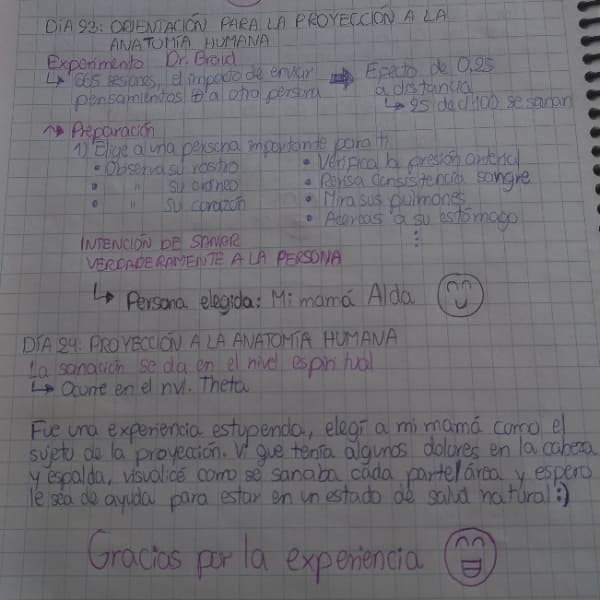 DÍA 23: ORIENTACIÓN PARA LA PROYECCIÓN A LA
ANATOMÍA HUMANA
Experimento Dr. Braid
↳ 665 sesiones, el impacto de enviar
pensamientos ⊕ a otra persona
➡ Efecto de 0,25
a distancia
↳ 25 de c/100 se sanan
⤳ Preparación
1) Elige a una persona importante para ti
• Observa su rostro
• " su cráneo
• " su corazón
• Verifica la presión arterial
• Revisa consistencia sangre
• Mira sus pulmones
• Acercas a su estómago
⋮
INTENCIÓN DE SANAR
VERDADERAMENTE A LA PERSONA
↳ Persona elegida: Mi mamá Alda
DÍA 24: PROYECCIÓN A LA ANATOMÍA HUMANA
La sanación se da en el nivel espiritual
↳ Ocurre en el nvl. Theta
Fue una experiencia estupenda, elegí a mi mamá como el
sujeto de la proyección. Vi que tenía algunos dolores en la cabeza
y espalda, visualicé como se sanaba cada parte/área y espero
le sea de ayuda para estar en un estado de salud natural :)
Gracias por la experiencia